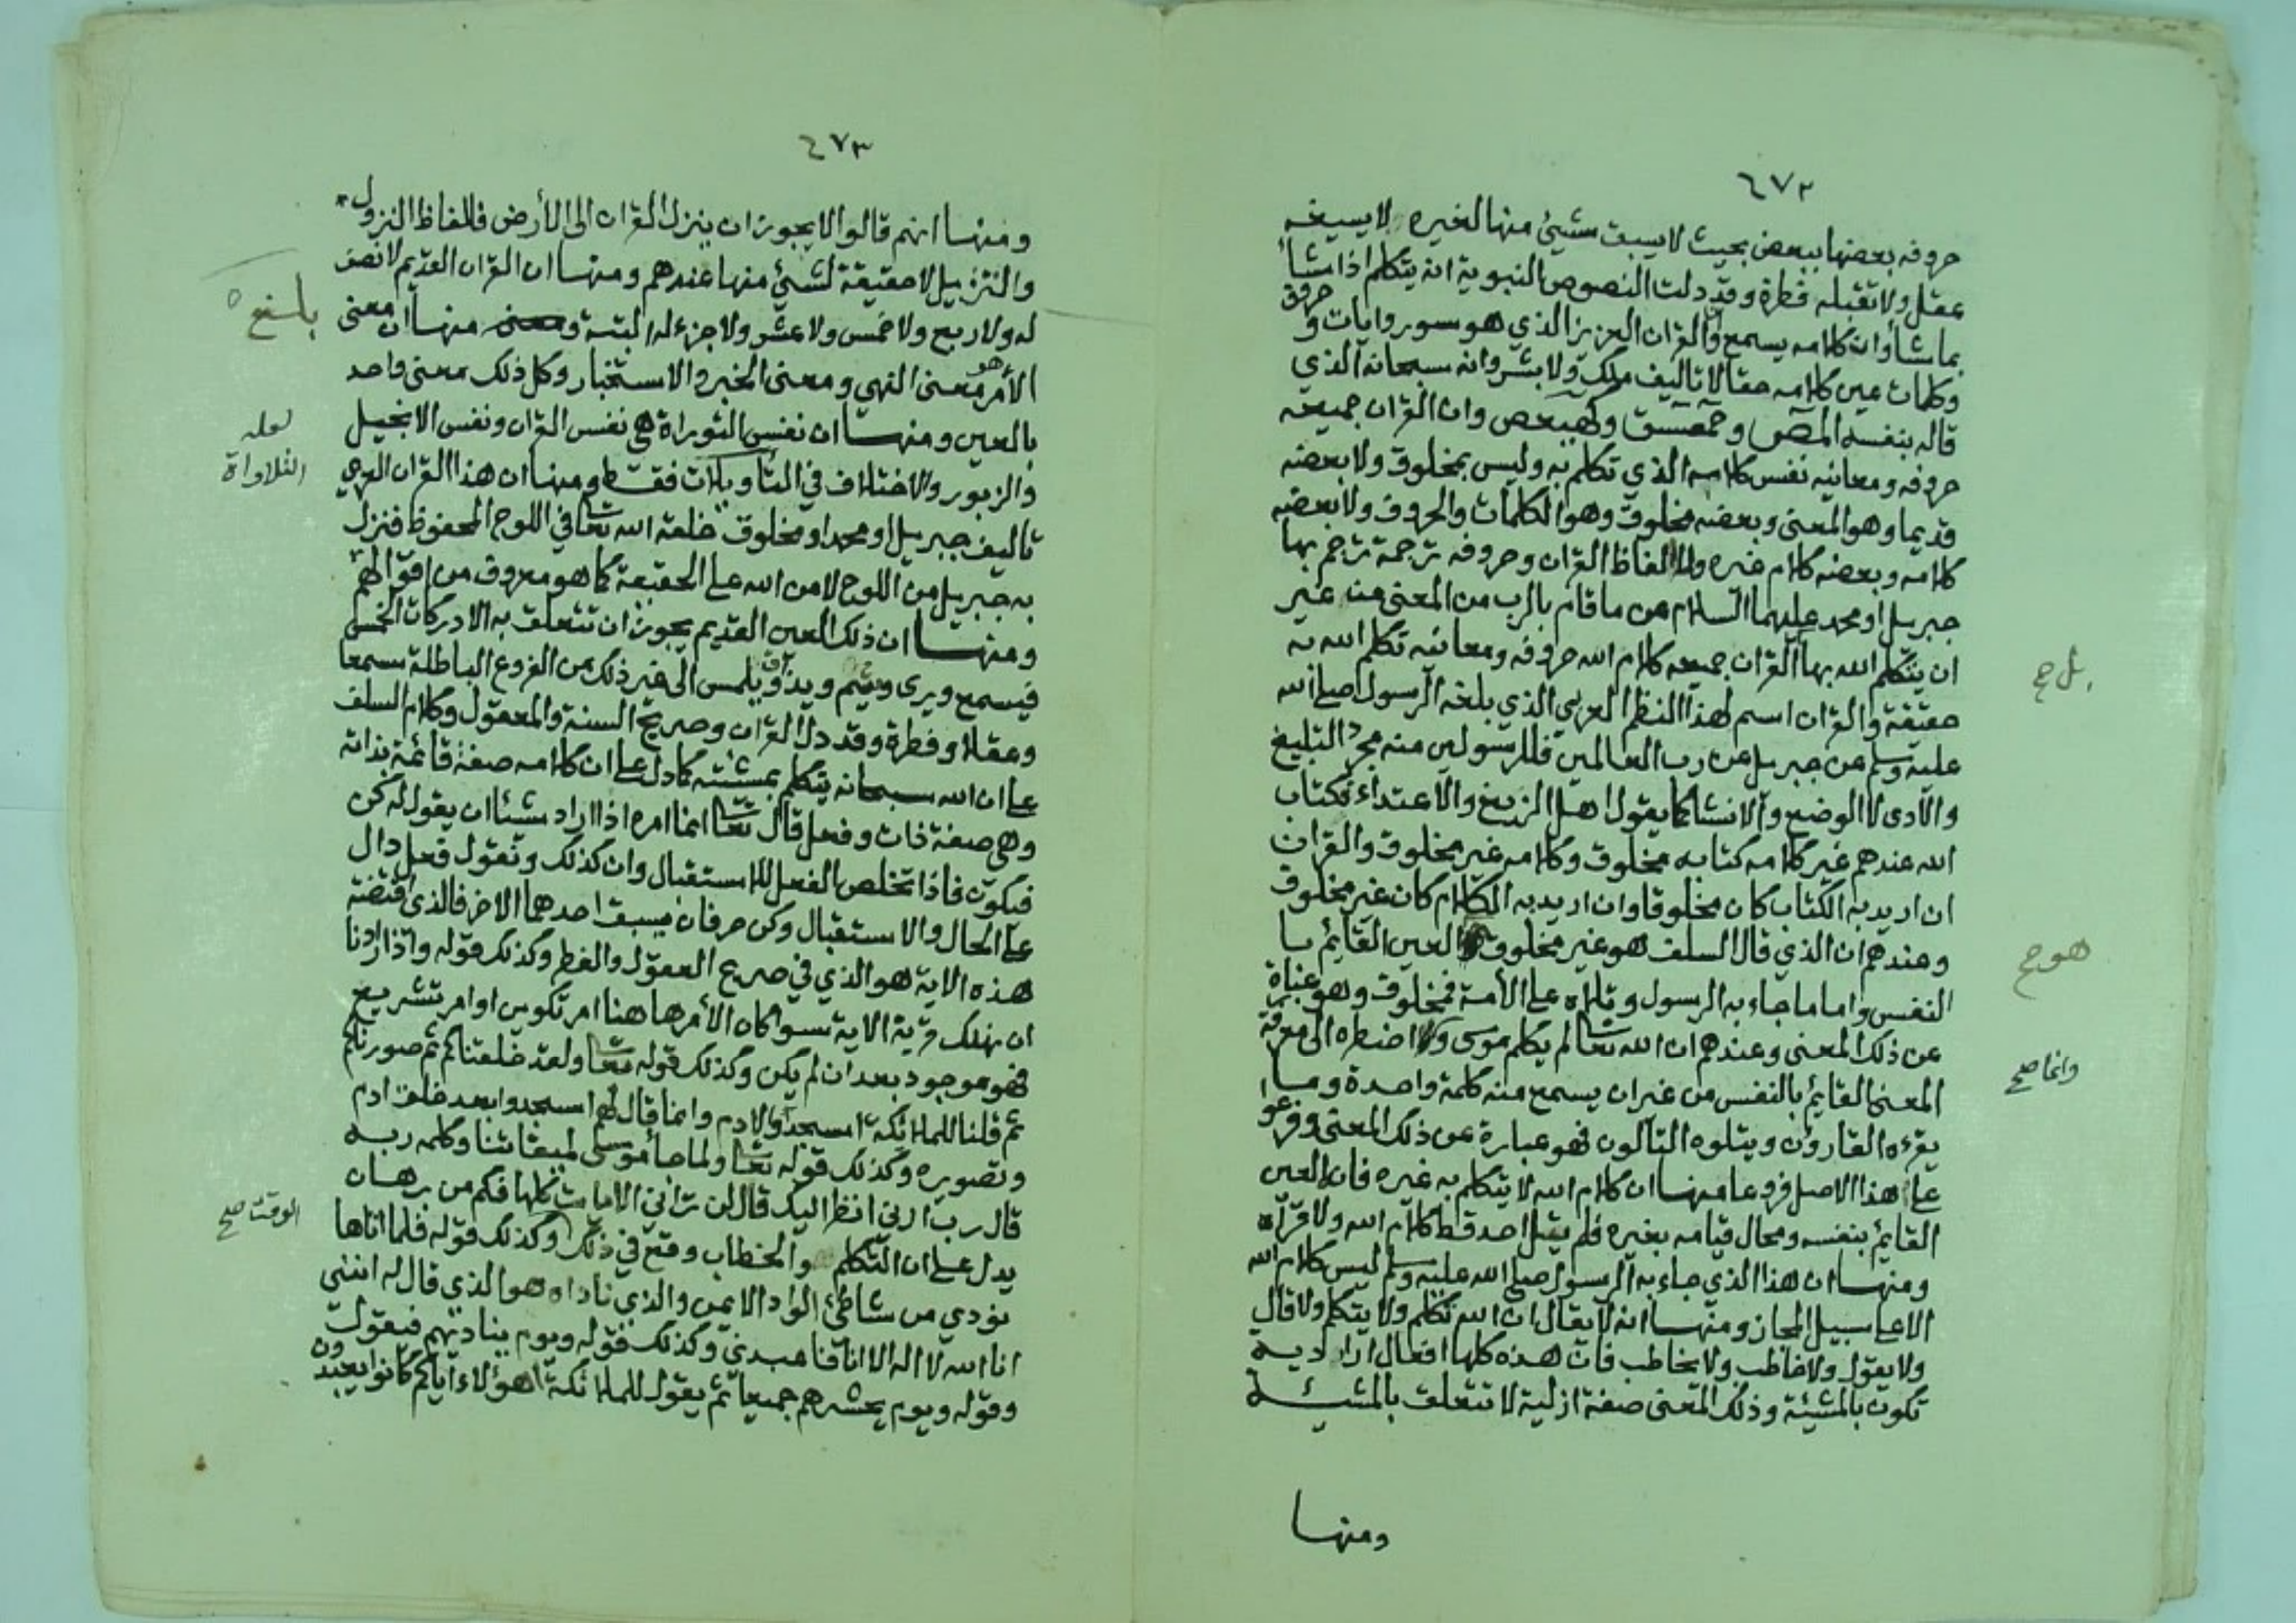 ٤٧٢
حروفه بعضها ببعض بحيث لا يسبق شيئ منها لغيره لا يسيغه
عقل ولا تقبله فطرة وقد دلت النصوص النبوية انه يتكلم اذا شأ
بما شأ وان كلامه يسمع وان القران العزيز الذي هو سور وايات وحروف
وكلمات عين كلامه حقا لا تاليف ملك ولا بشر وانه سبحانه الذي
قاله بنفسه المص وحمعسق وكهيعص وان القران جميعه
حروفه ومعانيه نفس كلامه الذي تكلم به وليس بمخلوق ولا بعضه
قديما وهو المعنى وبعضه مخلوق وهو الكلمات والحروف ولا بعضه
كلامه وبعضه كلام غيره ولا الفاظ القران وحروفه ترجمة ترجم بها
جبريل او محمد عليهما السلام عن ما قام بالرب من المعنى من غير
ان يتكلم الله بها القران جميعه كلام الله حروفه ومعانيه تكلم الله به
بل صح
حقيقة والقران اسم لهذا النظم العربي الذي بلغه الرسول صلى الله
عليه وسلم عن جبريل عن رب العالمين فللرسولين منه مجرد التبليغ
والادى لا الوضع والانشا كما يقول اهل الزيغ والاعتداء فكتاب
الله عندهم غير كلامه كتابه مخلوق وكلامه غير مخلوق والقران
ان اريد به الكتاب كان مخلوقا وان اريد به الكلام كان غير مخلوق
وعندهم ان الذي قال السلف هو غير مخلوق العين القائم با
هو صح
النفس واما ما جاء به الرسول وتلاه على الأمة فمخلوق وهو عبارة
عن ذلك المعنى وعندهم ان الله تعا لم يكلم موسى و اضطره الى معرفة
وانما صح
المعنى القائم بالنفس من غير ان يسمع منه كلمة واحدة وما
يقرءه القارؤن ويتلوه التالون فهو عبارة عن ذلك المعنى وفرعوا
على هذا الاصل فروعا منها ان كلام الله لا يتكلم به غيره فانه العين
القائم بنفسه ومحال قيامه بغيره فلم يتل احد قط كلام الله ولا قرأه
ومنها ان هذا الذي جاء به الرسول صلى الله عليه وسلم ليس كلام الله
الا على سبيل المجاز ومنها انه لا يقال ان الله تكلم ولا يتكلم ولا قال
ولا يقول ولا خاطب ولا يخاطب فان هذه كلها افعال ارادية
تكون بالمشيئة وذلك المعنى صفة ازلية لا تتعلق بالمشيئة
ومنها
٤٧٣
ومنها انهم قالوا لا يجوز ان ينزل القران الى الأرض فالفاظ النزول
والتنزيل لا حقيقة لشيئ منها عندهم ومنها ان القران القديم لا نصف
له ولا ربع ولا خمس ولا عشر ولا جزء له البتة و منها ان معنى
الأمر هو معنى النهي ومعنى الخبر والاستخبار وكل ذلك معنى واحد
بالعين ومنها ان نفس التوراة هي نفس القران ونفس الانجيل
لعله
والزبور والاختلاف في التأويلات فقط ومنها ان هذا القران العربي
التلاواة
تأليف جبريل او محمد او مخلوق خلقه الله تعا في اللوح المحفوظ فنزل
به جبريل من اللوح لا من الله على الحقيقة كما هو معروف من اقوالهم
ومنها ان ذلك العين القديم يجوز ان تتعلق به الادركات الخمس
فيسمع ويرى ويشم ويذاق ويلمس الى غير ذلك من الفروع الباطلة سمعا
وعقلا وفطرة وقد دل القران وصريح السنة والمعقول وكلام السلف
على ان الله سبحانه يتكلم بمشئته كما دل على ان كلامه صفة قائمة بذاته
وهي صفة ذات وفعل قال تعا انما امره اذا اراد شيئا ان يقول له كن
فيكون فاذا تخلص الفعل للاستقبال وان كذلك ونقول فعل دال
على الحال والاستقبال وكن حرفان يسبق احدهما الاخر فالذي اقتضته
هذه الاية هو الذي في صريح العقول والفطر وكذلك قوله واذا اردنا
ان نهلك قرية الاية سوا كان الأمر هاهنا امر تكوين او امر تشريع
فهو موجود بعد ان لم يكن وكذلك قوله تعا ولقد خلقناكم ثم صورناكم
ثم قلنا للملائكة اسجدوا لادم وانما قال لهم اسجدوا بعد خلق ادم
وتصويره وكذلك قوله تعا ولما جأ موسى لميقاتنا وكلمه ربه
قال رب ارني انظر اليك قال لن تراني الايات كلها فكم من برهان
يدل على ان التكلم والخطاب وقع في ذلك وكذلك قوله فلما اتاها
الوقت صح
نودي من شاطئ الواد الايمن والذي ناداه هو الذي قال له انني
انا الله لا اله الا انا فاعبدني وكذلك قوله ويوم يناديهم فيقول
وقوله ويوم يحشرهم جميعا ثم يقول للملائكة اهؤلاء اياكم كانوا يعبدون